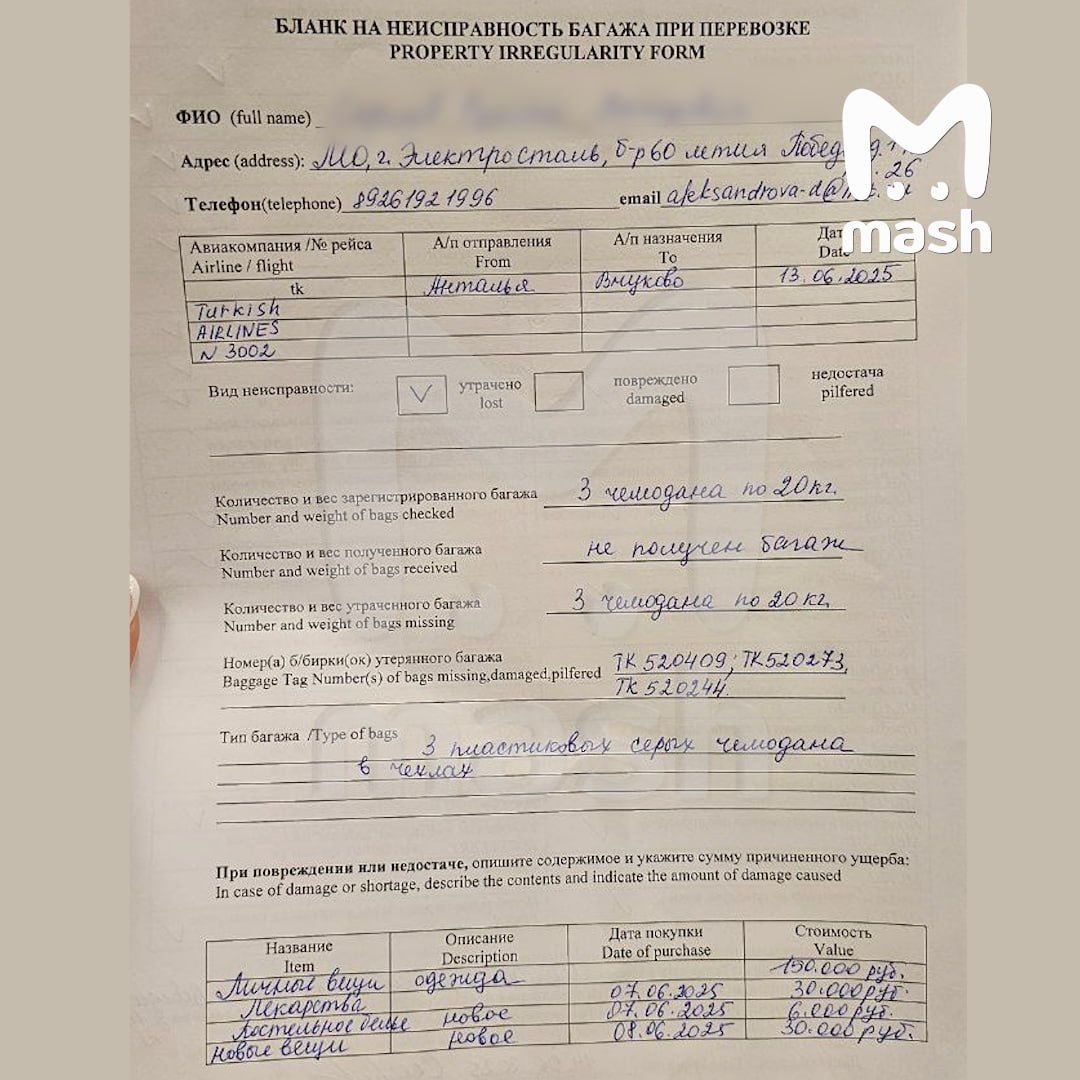 БЛАНК НА НЕИСПРАВНОСТЬ БАГАЖА ПРИ ПЕРЕВОЗКЕ
PROPERTY IRREGULARITY FORM
ФИО (full name)
Адрес (address): МО, г. Электросталь, б-р 60 летия
26
Телефон(telephone) 89261921996 email aleksandrova-d@
mash
Авиакомпания /№ рейса А/п отправления А/п назначения
Airline / flight From To Date
tk Анталья Внуково 13.06.2025
Turkish
AIRLINES
N 3002
Вид неисправности: V утрачено повреждено недостача
lost damaged pilfered
Количество и вес зарегистрированного багажа 3 чемодана по 20кг.
Number and weight of bags checked
Количество и вес полученного багажа не получен багаж
Number and weight of bags received
Количество и вес утраченного багажа 3 чемодана по 20кг.
Number and weight of bags missing
Номер(а) б/бирки(ок) утерянного багажа ТК 520409; ТК520273,
Baggage Tag Number(s) of bags missing,damaged,pilfered ТК 520244.
Тип багажа /Type of bags 3 пластиковых серых чемодана
в чехлах
При повреждении или недостаче, опишите содержимое и укажите сумму причиненного ущерба:
In case of damage or shortage, describe the contents and indicate the amount of damage caused
Название Описание Дата покупки Стоимость
Item Description Date of purchase Value
Личные вещи одежда 150.000 руб.
Лекарства 07.06.2025 30.000руб.
Постельное белье новое 07.06.2025 6.000руб.
новые вещи новое 08.06.2025 30.000 руб.